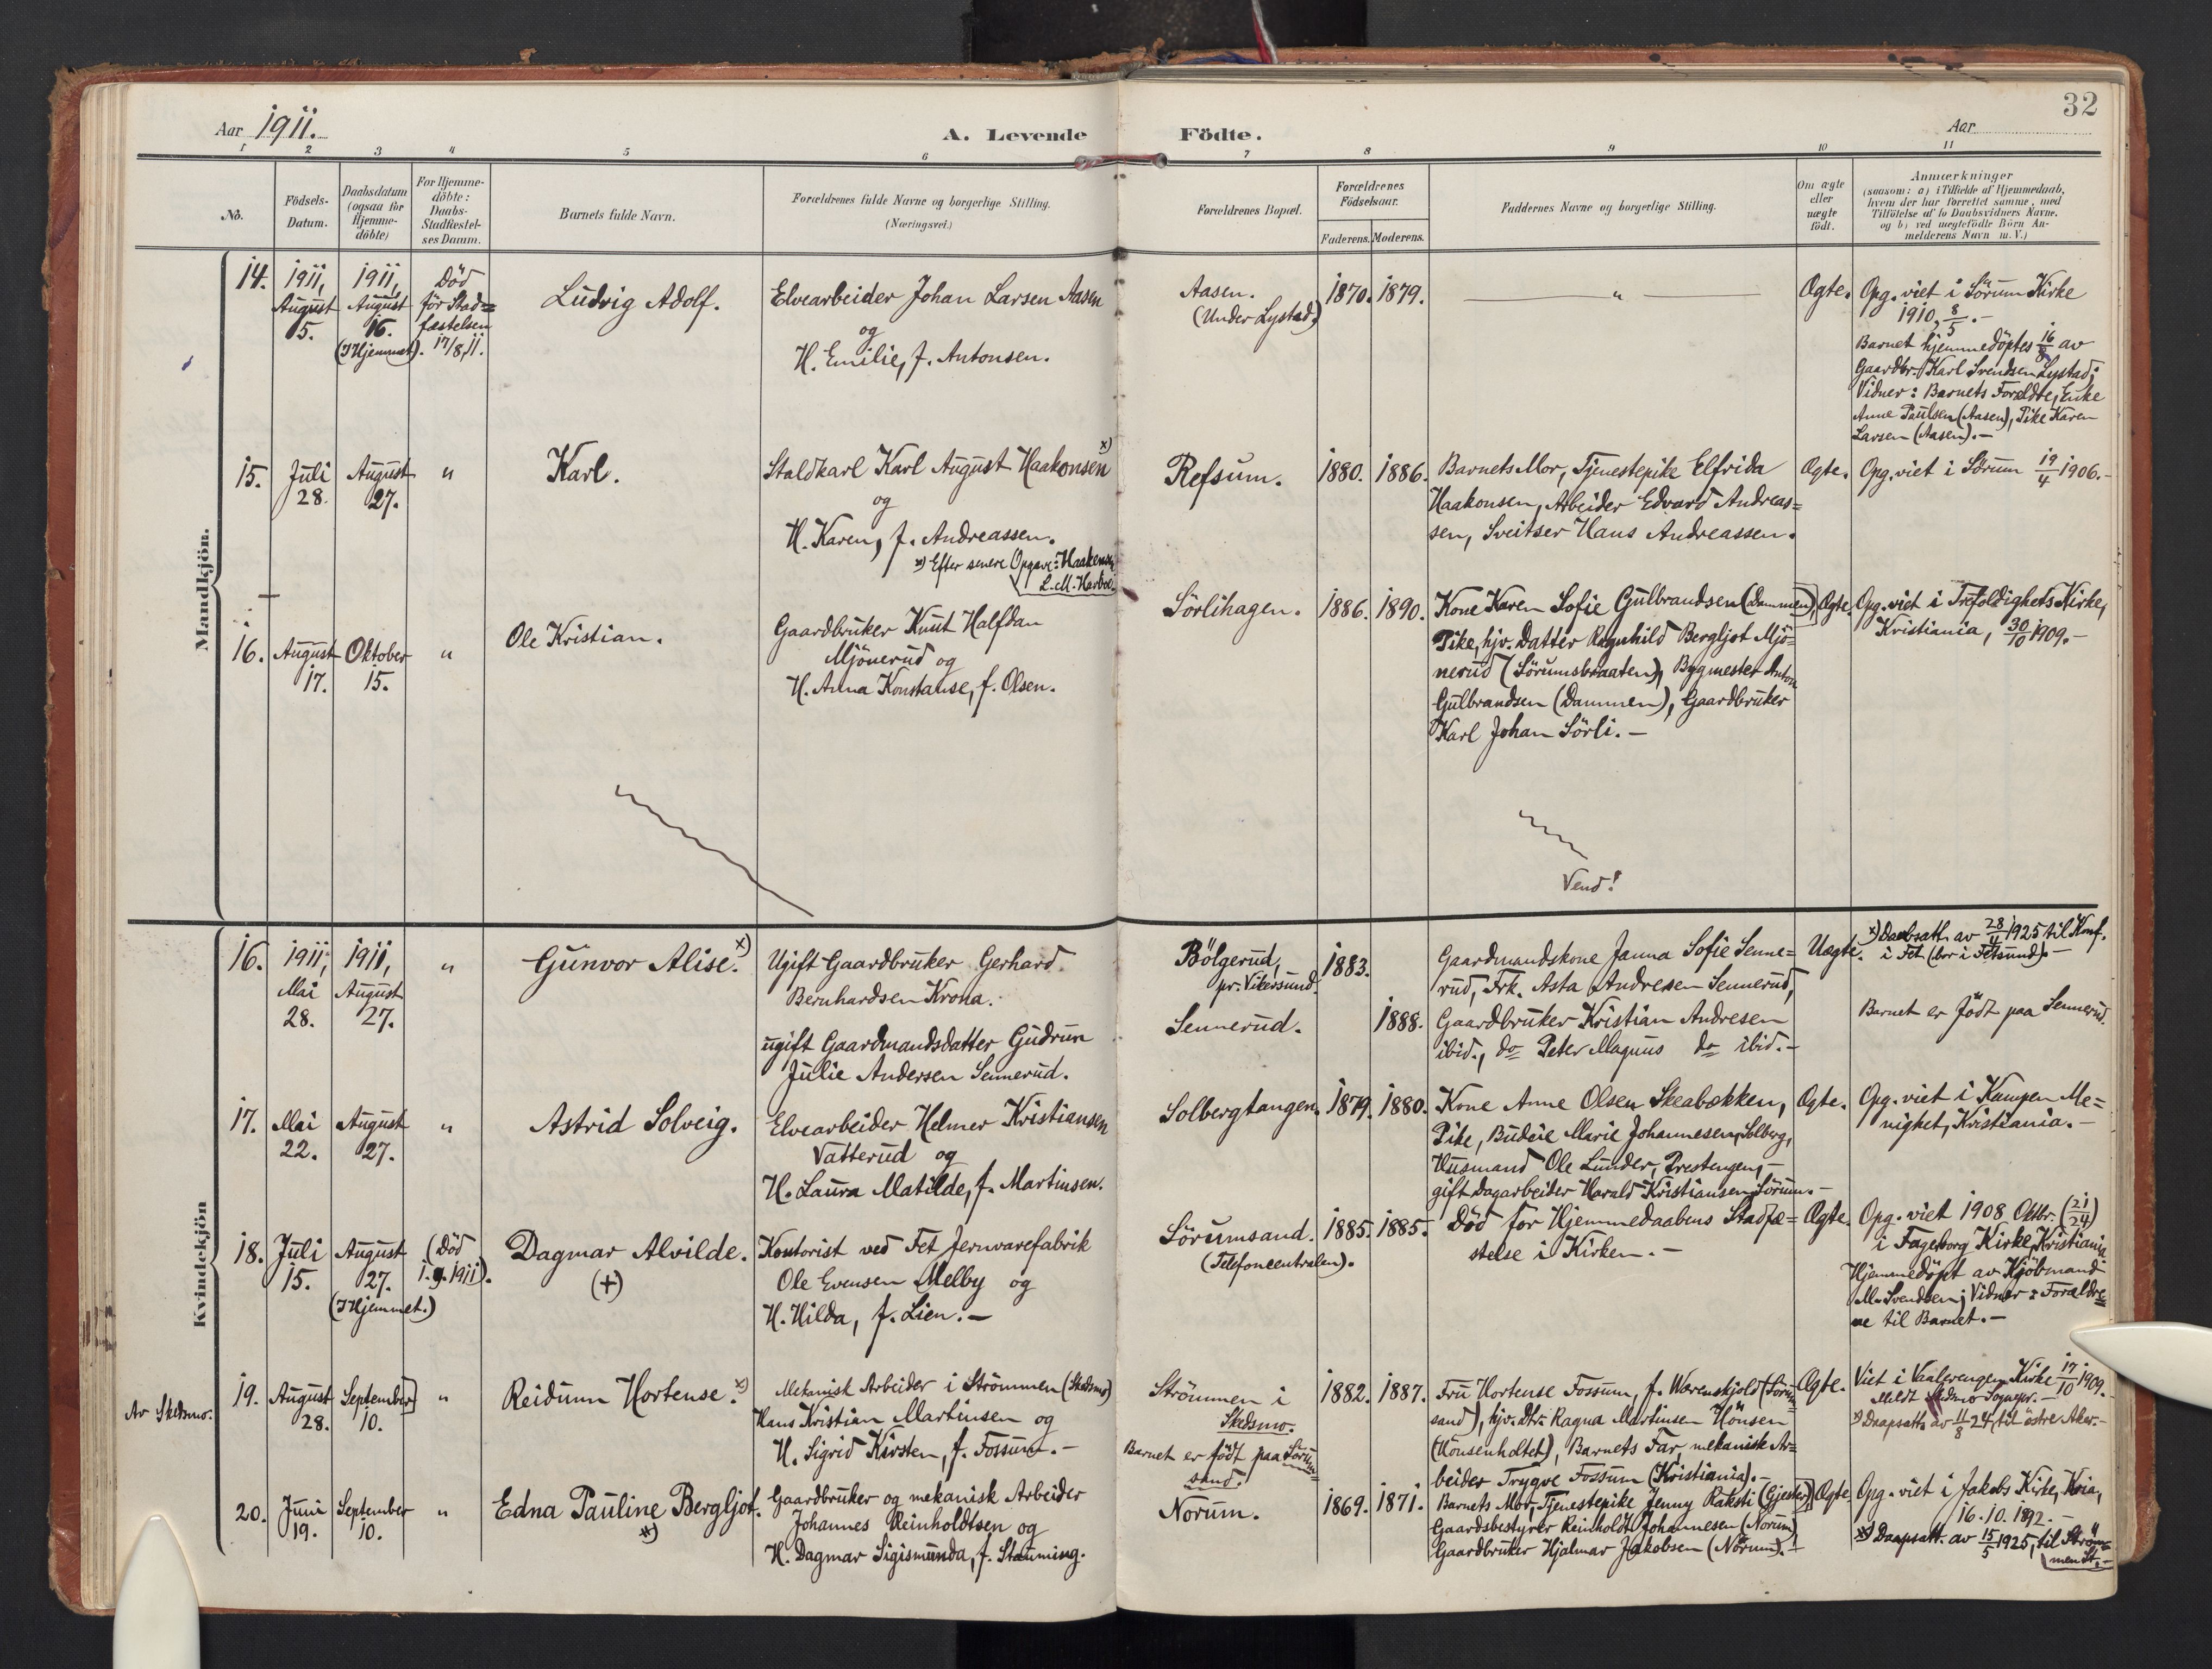 32
Aar 1911.
A. Levende Födte.
Aar
1 2 3 4 5 6 7 8 9 10 11
No.
Födsels-
Datum.
Daabsdatum
(ogsaa for
Hjemme-
döbte)
For Hjemme-
döbte:
Daabs-
Stadfæstel-
ses Datum.
Barnets fulde Navn.
Forældrenes fulde Navne og borgerlige Stilling.
(Næringsvei.)
Forældrenes Bopæl.
Forældrenes
Födselsaar.
Faderens. Moderens.
Faddernes Navne og borgerlige Stilling.
Om ægte
eller
uægte
födt.
Anmærkninger
(saasom: a) i Tilfælde af Hjemmedaab,
hvem der har forrettet samme, med
Tilföielse af to Daabsvidners Navne,
og b) ved uægtefödte Börn An-
melderens Navn m. V.)
Mandkjön.
14.
1911,
August
5.
1911,
August
16.
(I Hjemmet).
Död
för Stad=
fæstelsen
17/8, 11.
Ludvig Adolf.
Elvearbeider Johan Larsen Aasen
og
H. Emilie, f. Antonsen.
Aasen.
(Under Lystad)
1870. 1879.
"
Ægte.
Opg. viet i Sörum Kirke
1910, 8/5.-
Barnet hjemmedöptes 16/8 av
Gaardbr. Karl Svendsen Lystad;
Vidner: Barnets Forældre, Enke
Anne Paulsen (Aasen), Pike Karen
Larsen (Aasen).-
15.
Juli
28.
August
27.
"
Karl.
Staldkarl Karl August Haakonsen x)
og
H. Karen, f. Andreassen.
x) Efter senere Opgave: Haakensen
L. M. Harboe.
Refsum.
1880. 1886.
Barnets Mor, Tjenestepike Elfrida
Haakonsen, Arbeider Edvard Andreas=
sen, Sveitser Hans Andreassen.
Ægte.
Opg. viet i Sörum 19/4 1906.-
16.
August
17.
Oktober
15.
"
Ole Kristian.
Gaardbruker Knut Halfdan
Mjönerud og
H. Anna Konstanse, f. Olsen.
Sörlihagen.
1886. 1890.
Kone Karen Sofie Gulbrandsen (Dammen),
Pike, hjv. Datter Ragnhild Bergljot Mjö=
nerud (Sörumsbraaten), Bygmester Anton
Gulbrandsen (Dammen), Gaardbruker
Karl Johan Sörli.-
Ægte.
Opg. viet i Trefoldighets Kirke,
Kristiania, 30/10 1909.-
Vend!
Kvindekjön
16.
1911,
Mai
28.
1911,
August
27.
"
Gunvor Alise. x)
Ugift Gaardbruker Gerhard
Bernhardsen Krona.
ugift Gaardmandsdatter Gudrun
Julie Andersen Sennerud.
Bölgerud,
pr. Vikersund.
Sennerud.
1883.
1888.
Gaardmandskone Janna Sofie Senne=
rud, Frk. Asta Andresen Sennerud,
Gaardbruker Kristian Andresen
ibid., do Peter Magnus do ibid.-
Uægte.
x) Daabsatt. av 28/4 1925 til Konf.
i Fet (bor i Fetsund).-
Barnet er födt paa Sennerud.
17.
Mai
22.
August
27.
"
Astrid Solveig.
Elvearbeider Helmer Kristiansen
Vatterud og
H. Laura Matilde, f. Martinsen.
Solbergtangen.
1879. 1880.
Kone Anne Olsen Skeabækken,
Pike, Budeie Marie Johannesen, Solberg,
Husmand Ole Lunder, Prestengen,-
gift Dagarbeider Harald Kristiansen, Sörum.-
Ægte.
Opg. viet i Kampen Me=
nighet, Kristiania.-
18.
Juli
15.
August
27.
(I Hjemmet.)
(Död
1. 9. 1911).
Dagmar Alvilde.
(+)
Kontorist ved Fet Jernvarefabrik
Ole Evensen Melby og
H. Hilda, f. Lien.-
Sörumsand.
(Telefoncentralen).
1885. 1885.
Död for Hjemmedaabens Stadfæ=
stelse i Kirken.-
Ægte.
Opg. viet 1908 Oktbr. (21/24)
i Fagerborg Kirke, Kristiania
Hjemmedöpt av Kjöbmand
M. Svendsen; Vidner: Forældre
ne til Barnet.-
Av Skedsmo.
19.
August
28.
September
10.
"
Reidunn Hortense. x)
Mekanisk Arbeider i Strömmen (Skedsmo)
Hans Kristian Martinsen og
H. Sigrid Kirsten, f. Fossum.-
Strömmen i
Skedsmo.
Barnet er födt paa Sörum=
sand.
1882. 1887.
Fru Hortense Fossum, f. Wærenskjold (Sörum
sand), hjv. dtr. Ragna Martinsen Hönsen
(Hönsenholtet), Barnets Far, mekanisk Ar=
beider Trygve Fossum (Kristiania).-
Ægte.
Viet i Vaalerengen Kirke 17/10 1909.
Meldt Skedsmo Sognepr.-
x) Daapsatt. av 11/8 24, til östre Aker.-
20.
Juni
19.
September
10.
"
Edna Pauline Bergljot.
x)
Gaardbruker og mekanisk Arbeider
Johannes Reinholdtsen og
H. Dagmar Sigismunda, f. Stamming.
Norum.
1869. 1871.
Barnets Mor, Tjenestepike Jenny Raksti (Gjester),
Gaardsbestyrer Reinholdt Johannesen (Norum)
Gaardbruker Hjalmar Jakobsen (Norum).-
Ægte.
Opg. viet i Jakobs Kirke, Kria,
16. 10. 1892.-
x) Daapsatt. av 15/5 1925, til Ström=
men St.-